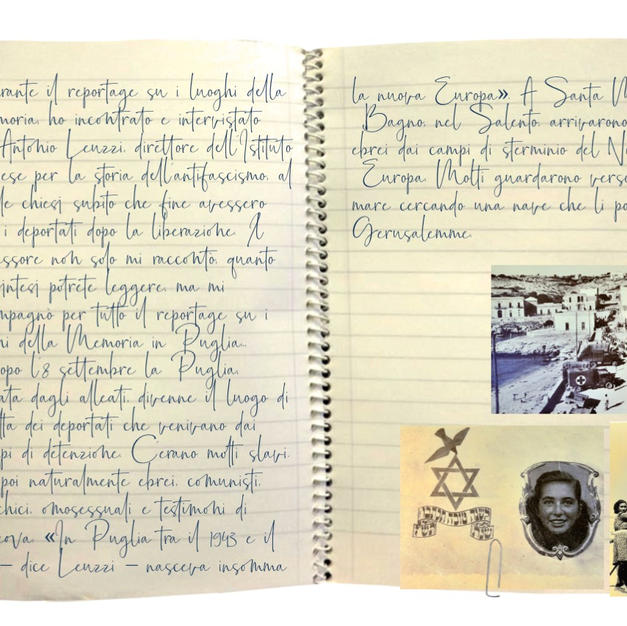 rante il reportage su i luoghi della
moria, ho incontrato e intervistato
Antonio Leuzzi, direttore dell'Istituto
ese per la storia dell'antifascismo, al
le chiesi subito che fine avessero
i deportati dopo la liberazione. Il
essore non solo mi racconto, quanto
intesi potrete leggere, ma mi
mpagnò per tutto il reportage su i
hi della Memoria in Puglia...
opo l'8 settembre la Puglia,
ata dagli alleati, divenne il luogo di
lta dei deportati che venivano dai
pi di detenzione. C'erano molti slavi,
poi naturalmente ebrei, comunisti,
chici, omosessuali e testimoni di
eova. «In Puglia tra il 1943 e il
– dice Leuzzi – nasceva insomma
la nuova Europa» A Santa M
Bagno, nel Salento, arrivarono
ebrei dai campi di sterminio del No
Europa. Molti guardarono verso
mare cercando una nave che li po
Gerusalemme.